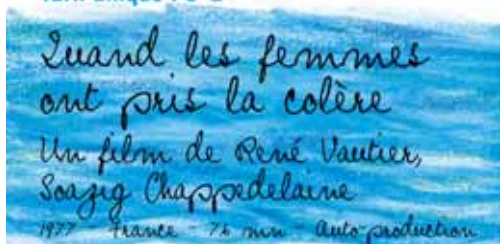 Quand les femmes
ont pris la colère
Un film de René Vautier,
Soazig Chappedelaine
1977 - France - mn - Auto-production